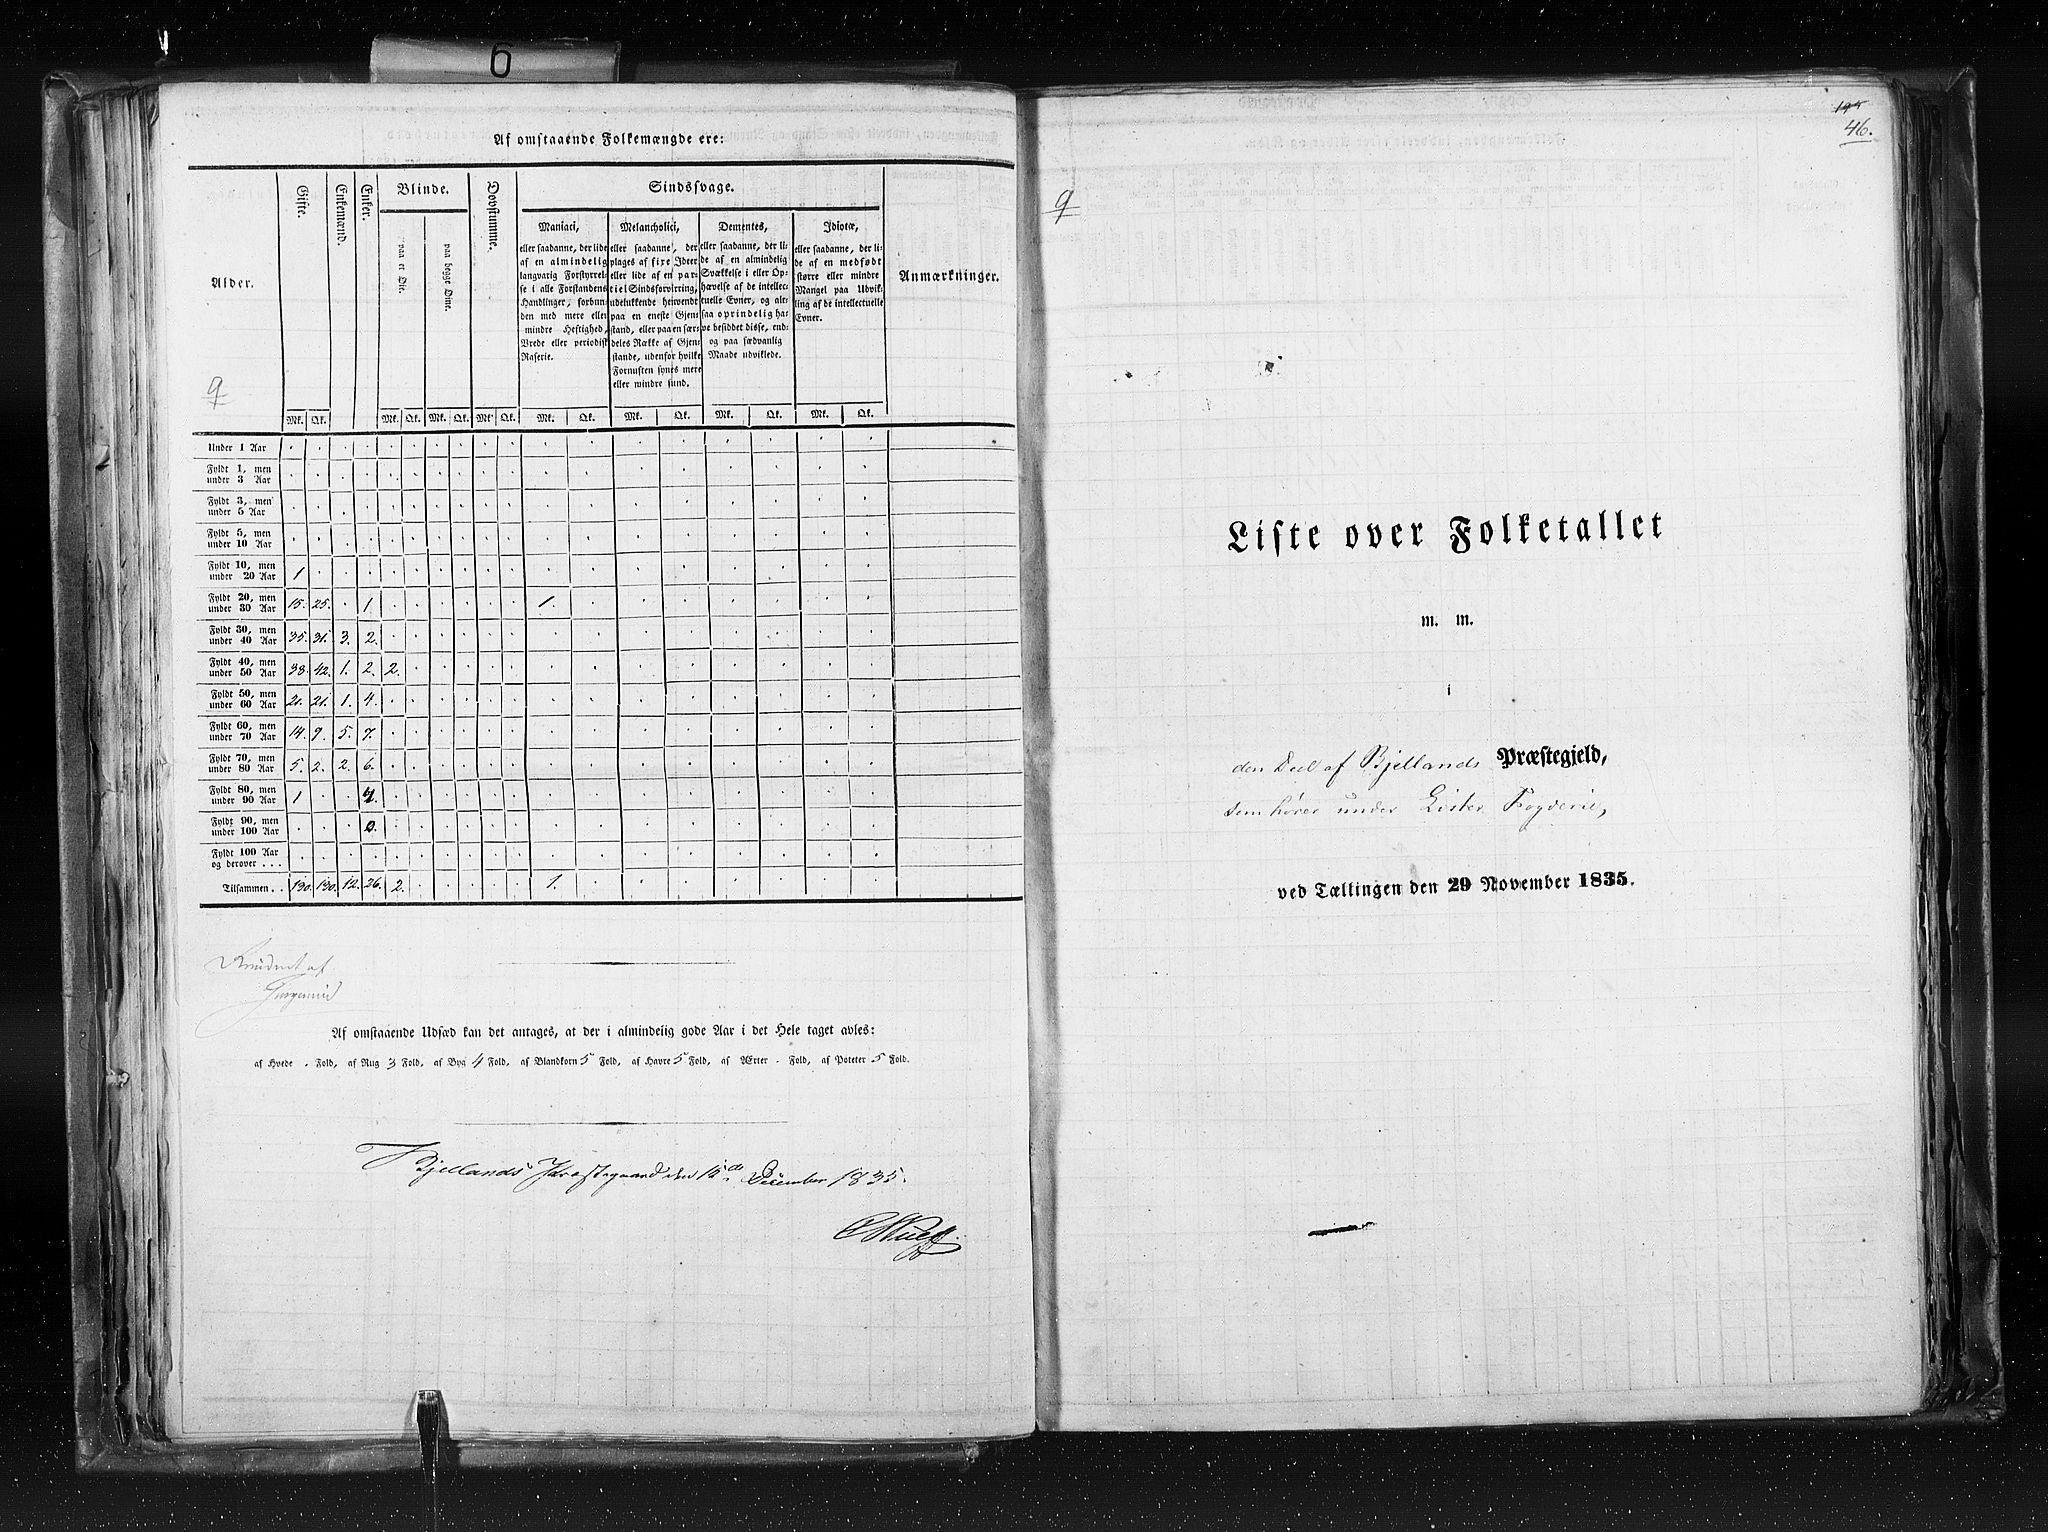 6
Af omstaaende Folkemængde ere:
Alder.
Gifte.
Enkemænd.
Enker.
Blinde.
paa et Øie.
paa begge Øine.
Døvstumme.
Sindssvage.
Maniaci,
eller saadanne, der lide
af en almindelig
langvarig Forstyrrel-
se i alle Forstandens
Handlinger, forbun-
den med mere eller
mindre Heftighed,
Vrede eller periodisk
Raserie.
Melancholici,
eller saadanne, der
plages af fixe Ideer
eller lide af en par-
tiel Sindsforvirring,
udelukkende henvendt
paa en eneste Gjen-
stand, eller paa en sær-
deles Række af Gjen-
stande, udenfor hvilke
Fornuften synes mere
eller mindre sund.
Dementes,
eller saadanne, der li-
de af en almindelig
Svækkelse i eller Op-
hævelse af de intellec-
tuelle Evner, og alt-
saa oprindelig ha-
ve besiddet disse, end-
og paa sædvanlig
Maade udviklede.
Idiotæ,
eller saadanne, der li-
de af en medfødt
større eller mindre
Mangel paa Udvik-
ling af de intellectuelle
Evner.
Anmærkninger.
9
Mk. Qk. Mk. Qk. Mk. Qk. Mk. Qk. Mk. Qk. Mk. Qk. Mk. Qk. Mk. Qk.
Under 1 Aar
Fyldt 1, men
under 3 Aar
Fyldt 3, men
under 5 Aar
Fyldt 5, men
under 10 Aar
Fyldt 10, men
under 20 Aar 1
Fyldt 20, men
under 30 Aar 15. 25. . 1. 1.
Fyldt 30, men
under 40 Aar 35. 31. 3. 2.
Fyldt 40, men
under 50 Aar 38. 42. 1. 2. 2.
Fyldt 50, men
under 60 Aar 21. 21. 1. 4.
Fyldt 60, men
under 70 Aar 14. 9. 5. 7.
Fyldt 70, men
under 80 Aar 5. 2. 2. 6.
Fyldt 80, men
under 90 Aar 1
Fyldt 90, men
under 100 Aar
Fyldt 100 Aar
og derover . . .
Tilsammen . . 130. 130. 12. 26. 2. 1.
af
Af omstaaende Udsæd kan det antages, at der i almindelig gode Aar i det Hele taget avles:
af Hvede . Fold, af Rug 3 Fold, af Byg 4 Fold, af Blandkorn 5 Fold, af Havre 5 Fold, af Ærter . Fold, af Poteter 5 Fold.
Bjellands Præstegaard den December 1835.
46.
9
Liste over Folketallet
m. m.
i
den Deel af Bjellands Præstegjeld,
som hører under Lister Fogderie,
ved Tællingen den 29 November 1835.